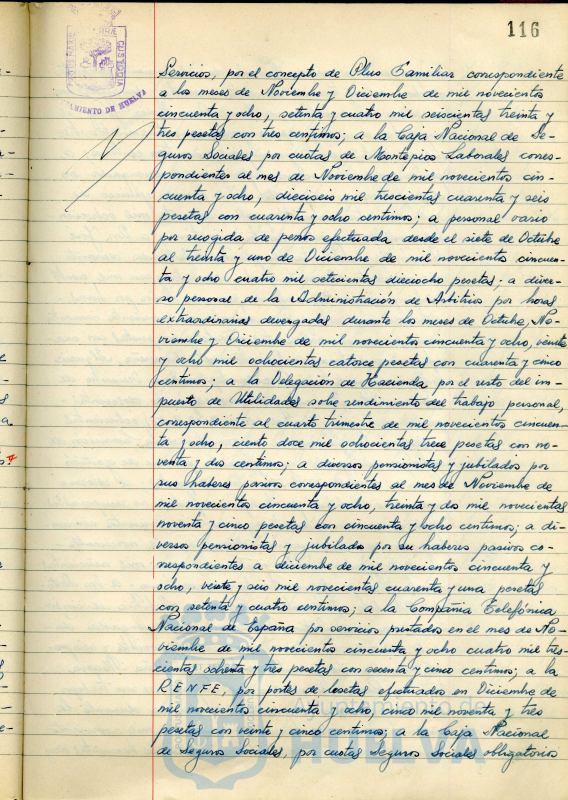 116
CUSTODIA
AYUNTAMIENTO DE HUELVA
Servicios, por el concepto de Plus Familiar correspondiente
a los meses de Noviembre y Diciembre de mil novecientos
cincuenta y ocho, setenta y cuatro mil seiscientas treinta y
tres pesetas con tres centimos; a la Caja Nacional de Se-
guros Sociales por cuotas de Montepios Laborales corres-
pondientes al mes de Noviembre de mil novecientos cin-
cuenta y ocho, dieciseis mil trescientas cuarenta y seis
pesetas con cuarenta y ocho centimos; a personal vario
por recogida de perros efectuada desde el siete de Octubre
al treinta y uno de Diciembre de mil novecientos cincuen-
ta y ocho cuatro mil setecientas dieciocho pesetas; a diver-
so personal de la Administración de Arbitrios por horas
extraordinarias devengadas durante los meses de Octubre, No-
viembre y Diciembre de mil novecientos cincuenta y ocho, veinte
y ocho mil ochocientas catorce pesetas con cuarenta y cinco
centimos; a la Delegación de Hacienda por el resto del im-
puesto de Utilidades sobre rendimiento del trabajo personal,
correspondiente al cuarto trimestre de mil novecientos cincuen-
ta y ocho, ciento doce mil ochocientas trece pesetas con no-
venta y dos centimos; a diversos pensionistas y jubilados por
sus haberes pasivos correspondientes al mes de Noviembre de
mil novecientos cincuenta y ocho, treinta y dos mil novecientas
noventa y cinco pesetas con cincuenta y ocho centimos; a di-
versos pensionistas y jubilados por su haberes pasivos co-
rrespondientes a diciembre de mil novecientos cincuenta y
ocho, veinte y seis mil novecientas cuarenta y una pesetas
con setenta y cuatro centimos; a la Compañia Telefónica
Nacional de España por servicios prestados en el mes de No-
viembre de mil novecientos cincuenta y ocho cuatro mil tres-
cientas ochenta y tres pesetas con y cinco centimos; a la
RENFE, por portes de losetas efectuados en Diciembre de
mil novecientos cincuenta y ocho, cinco mil noventa y tres
pesetas con veinte y cinco centimos; a la Caja Nacional
de Seguros Sociales, por cuotas Seguros Sociales obligatorios
Ayuntamiento de
HUELVA